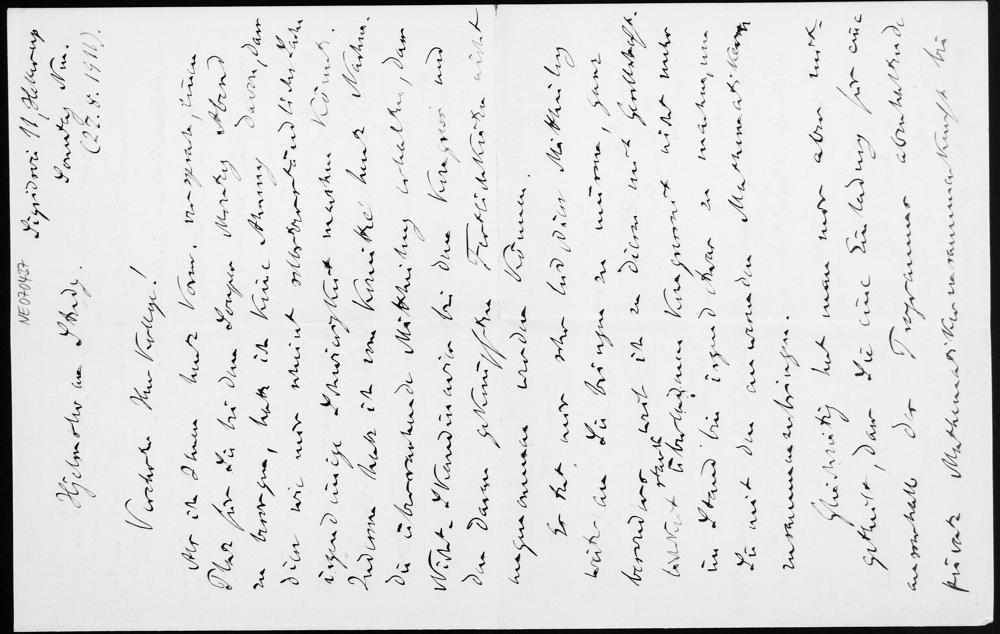 NE070437
Sigridsvei 11, Hellerup
Sonntag Nm.
(27.8.1911).
Hjelmslev an Study.
Verehrter Herr Kollege!
Als ich Ihnen heut Vorm. versprach, einen
Platz für Sie bei dem Souper Montag Abend
zu besorgen, hatte ich keine Ahnung davon, dass
dies wie mir scheint selbstverständliche Sache
irgend einige Schwierigkeit machen könnte.
Indessen habe ich vom Komité heut Nachm.
die überraschende Mitteilung erhalten, dass
Nicht-Skandinavier bei dem Kongress und
den daran geknüpften Festlichkeiten nicht
angenommen werden können.
Es tut mir sehr leid diese Mitteilung
weiter an Sie bringen zu müssen, ganz
besonders weil ich in diesem mit Gesellschaft-
lichkeit stark überladenen Kongresse nicht mehr
im Stand bin irgend etwas zu machen, um
Sie mit den anwesenden Mathematikern
zusammenzubringen.
Gleichzeitig hat man mir aber mit-
geteilt, dass Sie eine Einladung für eine
ausserhalb des Programmes abzuhaltende
private Mathematikerzusammenkunft bei